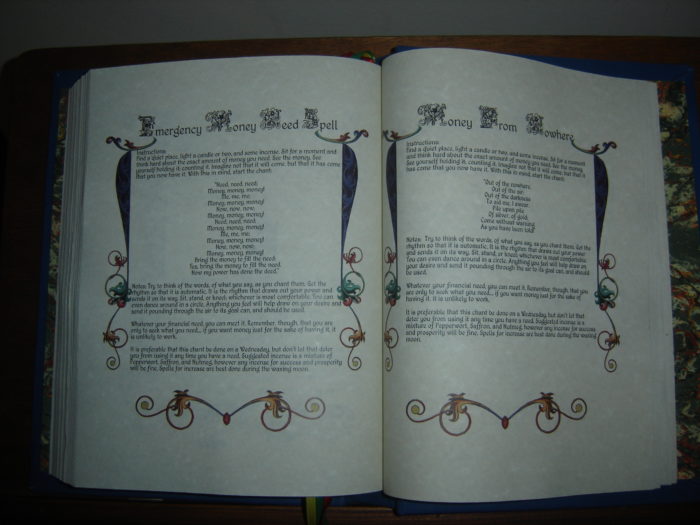 Emergency Money Need Spell
Instructions:
Find a quiet place, light a candle or two, and some incense. Sit for a moment and
think hard about the exact amount of money you need. See the money. See
yourself holding it, counting it. Imagine not that it will come, but that it has come
that you now have it. With this in mind, start the chant:
"Need, need, need;
Money, money, money!
Me, me, me;
Money, money, money!
Now, now, now,
Money, money, money!
Need, need, need,
Money, money, money!
Me, me, me;
Money, money, money!
Now, now, now,
Money, money, money!
Bring the money to fill the need.
Yes, bring the money to fill the need.
Now my power has done the deed."
Notes: Try to think of the words, of what you say, as you chant them. Get the
rhythm so that it is automatic. It is the rhythm that draws out your power and
sends it on its way. Sit, stand, or kneel, whichever is most comfortable. You can
even dance around in a circle. Anything you feel will help draw on your desire and
send it pounding through the air to its goal can, and should be used.
Whatever your financial need, you can meet it. Remember, though, that you are
only to seek what you need... if you want money just for the sake of having it, it
is unlikely to work.
It is preferable that this chant be done on a Wednesday, but don't let that deter
you from using it any time you have a need. Suggested incense is a mixture of
Pepperwort, Saffron, and Nutmeg, however any incense for success and prosperity
will be fine. Spells for increase are best done during the waxing moon.
Money From Nowhere
Instructions:
Find a quiet place, light a candle or two, and some incense. Sit for a moment
and think hard about the exact amount of money you need. See the money.
See yourself holding it, counting it. Imagine not that it will come, but that it
has come that you now have it. With this in mind, start the chant:
"Out of the nowhere,
Out of the air;
Out of the darkness
To aid me, I swear.
Pile upon pile,
Of silver, of gold,
Come without warning
As you have been told!"
Notes: Try to think of the words, of what you say, as you chant them. Get the
rhythm so that it is automatic. It is the rhythm that draws out your power
and sends it on its way. Sit, stand, or kneel, whichever is most comfortable.
You can even dance around in a circle. Anything you feel will help draw on
your desire and send it pounding through the air to its goal can, and should
be used.
Whatever your financial need, you can meet it. Remember, though, that you
are only to seek what you need... if you want money just for the sake of
having it, it is unlikely to work.
It is preferable that this chant be done on a Wednesday, but don't let that
deter you from using it any time you have a need. Suggested incense is a
mixture of Pepperwort, Saffron, and Nutmeg, however any incense for success
and prosperity will be fine. Spells for increase are best done during the waxing
moon.